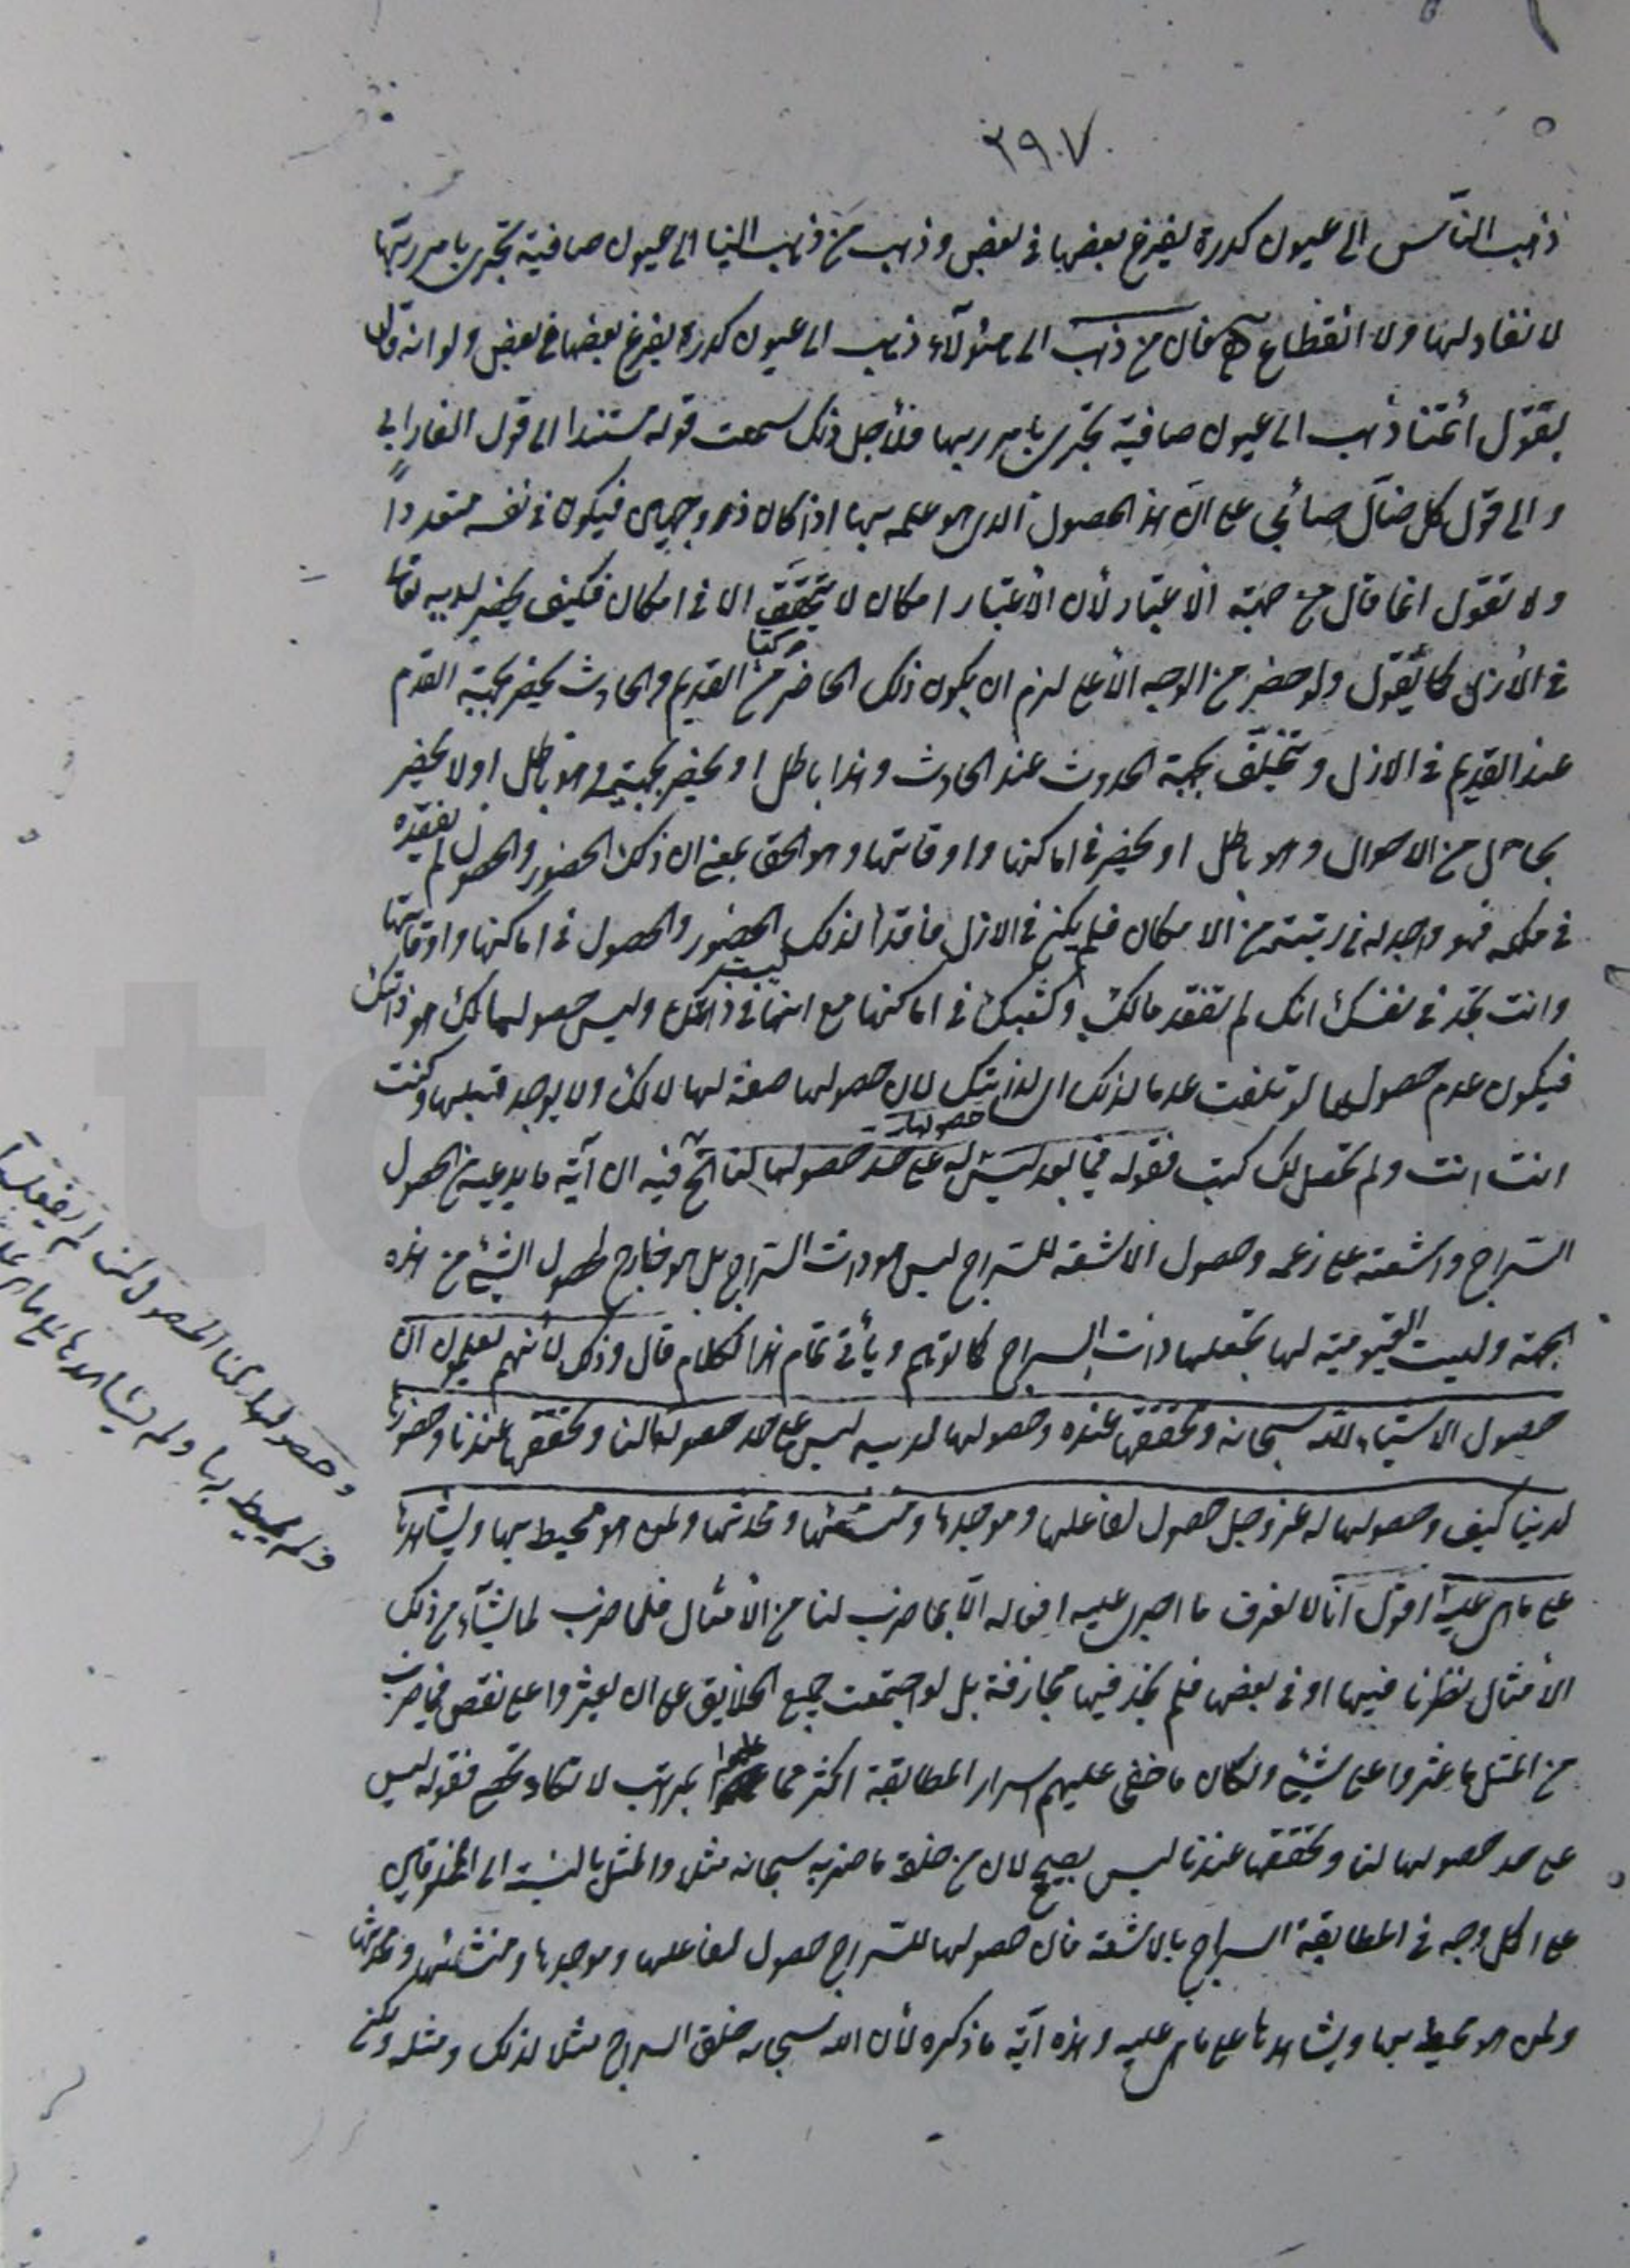 ٢٩٠٧
ذهب الناس الى عيون كدرة يفرغ بعضها فى بعض وذهب من ذهب الينا الى عيون صافية تجرى بامر ربها
لا نفاد لها ولا انقطاع فان من ذهب الى هؤلآء ذهب الى عيون كدرة يفرغ بعضها فى بعض ولو انه قال
بقول أئمتنا ذهب الى عيون صافية تجرى بامر ربها فلأجل ذلك سمعت قوله مستندا الى قول الفارابي
والى قول كل ضآل صائبي على ان هذا الحصول الذى هو علمه بها اذا كان ذو وجهين فيكون فى نفسه متعدداً
ولا تقول انما قال من جهة الاعتبار لأن الأعتبار امكان لا يتحقق الا فى امكان فكيف يحضر لديه
فى الأزل كما يقول ولو حضر من الوجه الأعلى لزم ان يكون ذلك الحاضر مركبا من القديم والحادث يحضر بجهة القدم
عند القديم فى الازل ويتخلف بجهة الحدوث عند الحادث وهذا باطل او يحضر بجهتيه وهو باطل او لا يحضر
بحال من الاحوال وهو باطل او يحضر فى اماكنها واوقاتها وهو الحق بمعنى ان ذلك الحضور والحصول لم يفقده
فى ملكه فهو واجد له فى رتبته من الامكان فلم يكن فى الازل فاقداً لذلك الحضور والحصول فى اماكنها واوقاتها
وانت تجد فى نفسك انك لم تفقد مالك وكتبك فى اماكنها مع انها ليست فى ذاتك وليس حصولها لك هو ذاتك
فيكون عدم حصولها لو تلفت عدما لذلك اى لذاتك لان حصولها صفة لها لا لك ولا يوجد قبلها وكنت
انت انت ولم تحصل لك كتب فقوله فيما بعد ليس له على حد حصولها لنا الخ فيه ان آية ما يدعيه من حصول
السّراج واشعته على زعمه وحصول الاشعة للسّراج ليس هو ذات السّراج بل هو خارج لحصول الشئ من هذه
الجهة وليست القيومية لها تجعلها ذات السراج كما توهم ويأتى تمام هذا الكلام قال وذلك لأنهم يعلمون ان
حصول الاشياء للّه سبحانه وتحققها عنده وحصولها لديه ليس على حد حصولها لنا وتحققها عندنا وحضورها
لدينا كيف وحصولها له عز وجل حصول لفاعلها وموجدها ومنشئها ومحدثها ولمن هو محيط بها ويشاهدها
على ما هى عليه اقول انا لا نعرف ما اجرى عليه افعاله الّا بما ضرب لنا من الأمثال فلما ضرب لما يشآء من ذلك
الأمثال نظرنا فيها او فى بعضها فلم نجد فيها مجازفة بل لو اجتمعت جميع الخلايق على ان يعثروا على نقص فيما ضرب
من المثل ما عثروا على شئ ولكان ما خفى عليهم اسرار المطابقة اكثر مما علموا بمراتب لا تكاد تحصى فقوله ليس
على حد حصولها لنا وتحققها عندنا ليس بصحيح لان من خلقه ما ضربه سبحانه مثلا والمثل بالنسبة الى المخلوقين
على اكمل وجه فى المطابقة السراج بالاشعة فان حصولها للسّراج حصول لفاعلها وموجدها ومنشئها ومحدثها
ولمن هو محيط بها ويشاهدها على ما هى عليه وهذه آية ما ذكره لأن الله سبحانه خلق السراج مثلا لذلك ومثله ولكن
وحصولها لنا حصول لمن لم يفعلها
ولم يحيط بها ولم يشاهدها على ما هى